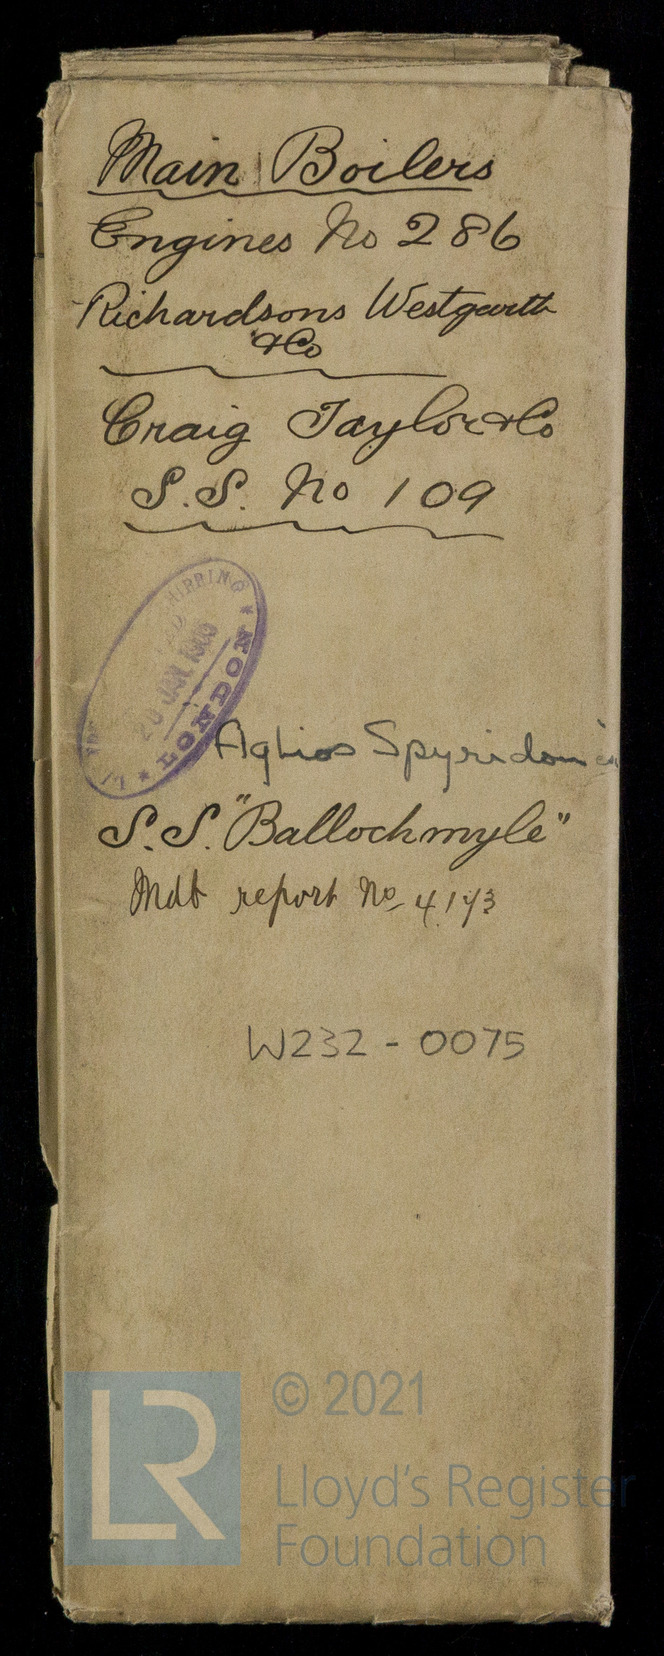 Main Boilers
Engines No 286
Richardsons Westgarth
&Co
Craig Taylor & Co
S.S. No 109
SHIPPING
20 JAN 1905
LONDON
Aghios Spyridon
S.S. "Ballochmyle"
Mdb report No 4143
W232-0075
LR
© 2021
Lloyd's Register
Foundation